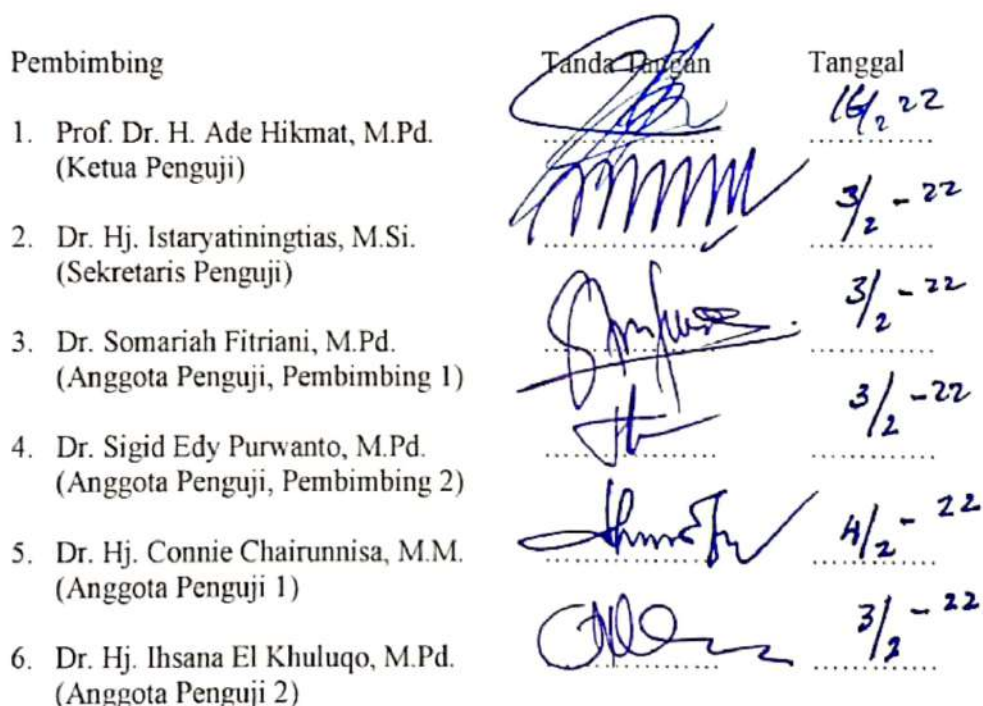 Pembimbing Tanda Tangan Tanggal
1. Prof. Dr. H. Ade Hikmat, M.Pd. 16/2 22
(Ketua Penguji)
2. Dr. Hj. Istaryatiningtias, M.Si. 3/2 - 22
(Sekretaris Penguji)
3. Dr. Somariah Fitriani, M.Pd. 3/2 - 22
(Anggota Penguji, Pembimbing 1)
4. Dr. Sigid Edy Purwanto, M.Pd. 3/2 - 22
(Anggota Penguji, Pembimbing 2)
5. Dr. Hj. Connie Chairunnisa, M.M. 4/2 - 22
(Anggota Penguji 1)
6. Dr. Hj. Ihsana El Khuluqo, M.Pd. 3/2 - 22
(Anggota Penguji 2)